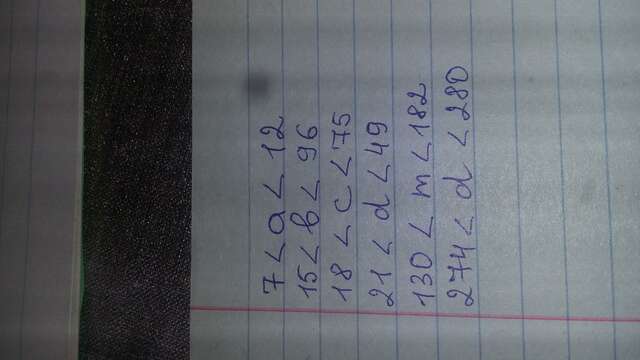 7 < a < 12
15 < b < 96
18 < c < 75
21 < d < 49
130 < m < 182
274 < d < 280